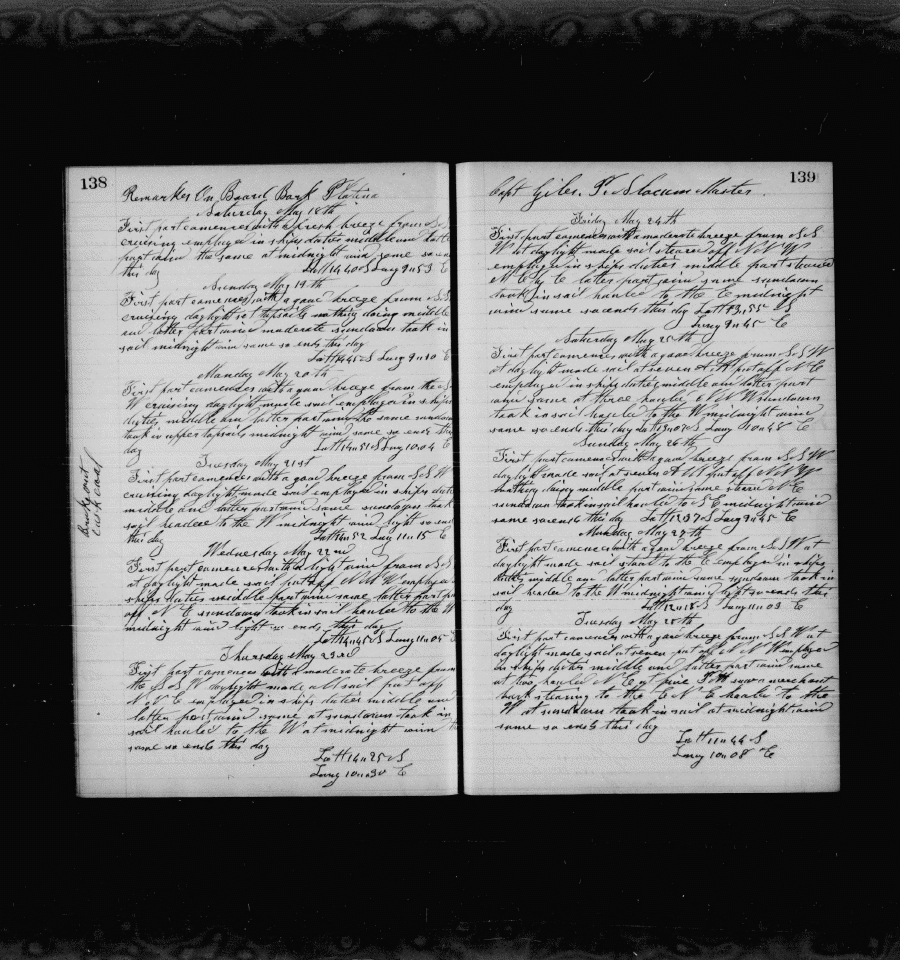 138
Remarkes On Board Bark Platina
Saturday May 18th
First part comences with a fresh breeze from S S
cruising employed in ships duties middle and latte
part wind the same at midnight wind same so en
this day Latt 14 40 S Long 9 53 E
Sunday May 19th
First part comences with a good breeze from S S
cruising daylight set topsails nothing doing middle
and latter part wind moderate sundown took in
sail midnight wind same so ends this day
Latt 14 45 S Long 9 40 E
Monday May 20th
First part comences with a good breeze from the S
W cruising daylight made sail employed in ships
duties middle and latter part wind the same sundown
took in upper topsails midnight wind same so ends this
day Latt 14 51 S Long 10 04 E
Tuesday May 21st
Broke out
cask coal
First part comences with a good breeze from S S W
cruising daylight made sail employed in ships dutie
middle and latter part wind same sundown took
sail headed to the W midnight wind light so end
this day Latt 14 52 Long 11 15 E
Wednesday May 22nd
First part comences with a light wind from S S
at daylight made sail put off N W W employed
ships duties middle part wind same latter part pu
off N E sundown took in sail hauled to the W
midnight wind light so ends this day
Latt 14 45 S Long 11 05 E
Thursday May 23rd
First part comences with a moderate breeze from
the S S W daylight made all sail put off
N N E employed in ships duties middle and
latter part wind same at sundown took in
sail hauled to the W at midnight wind th
same so ends this day
Latt 14 25 S
Long 10 30 E
139
Capt Giles P. Slocum Master
Friday May 24th
First part comences with a moderate breeze from S S
W at daylight made sail steered off N N W
employed in ships duties middle part steered
N E by E latter part wind same sundown
took in sail hauled to the E midnight
wind same so ends this day Latt 13 55 S
Long 9 45 E
Saturday May 25th
First part comences with a good breeze from S S W
at daylight made sail at seven A M put off N E
employed in ships duties middle and latter part
wind same at three hauled N N W sundown
took in sail hauled to the W midnight wind
same so ends this day Latt 13 07 S Long 10 48 E
Sunday May 26th
First part comences with a good breeze from S S W
daylight made sail at seven A M put off N N W
nothing doing middle part wind same steered N E
sundown took in sail hauled to S E midnight wind
same so ends this day Latt 12 37 S Long 9 45 E
Monday May 27th
First part comences with a good breeze from S S W at
daylight made sail stood to the E employed in ships
duties middle and latter part wind same sundown took in
sail headed to the W midnight wind light so ends this
day Latt 12 18 S Long 11 03 E
Tuesday May 28th
First part comences with a good breeze from S S W at
daylight made sail at seven put off N N W employed
in ships duties middle and latter part wind same
at two hauled N E at five P M saw a merchant
bark stearing to the E N E hauled to the
W at sundown took in sail at midnight wind
same so ends this day
Latt 11 44 S
Long 10 08 E